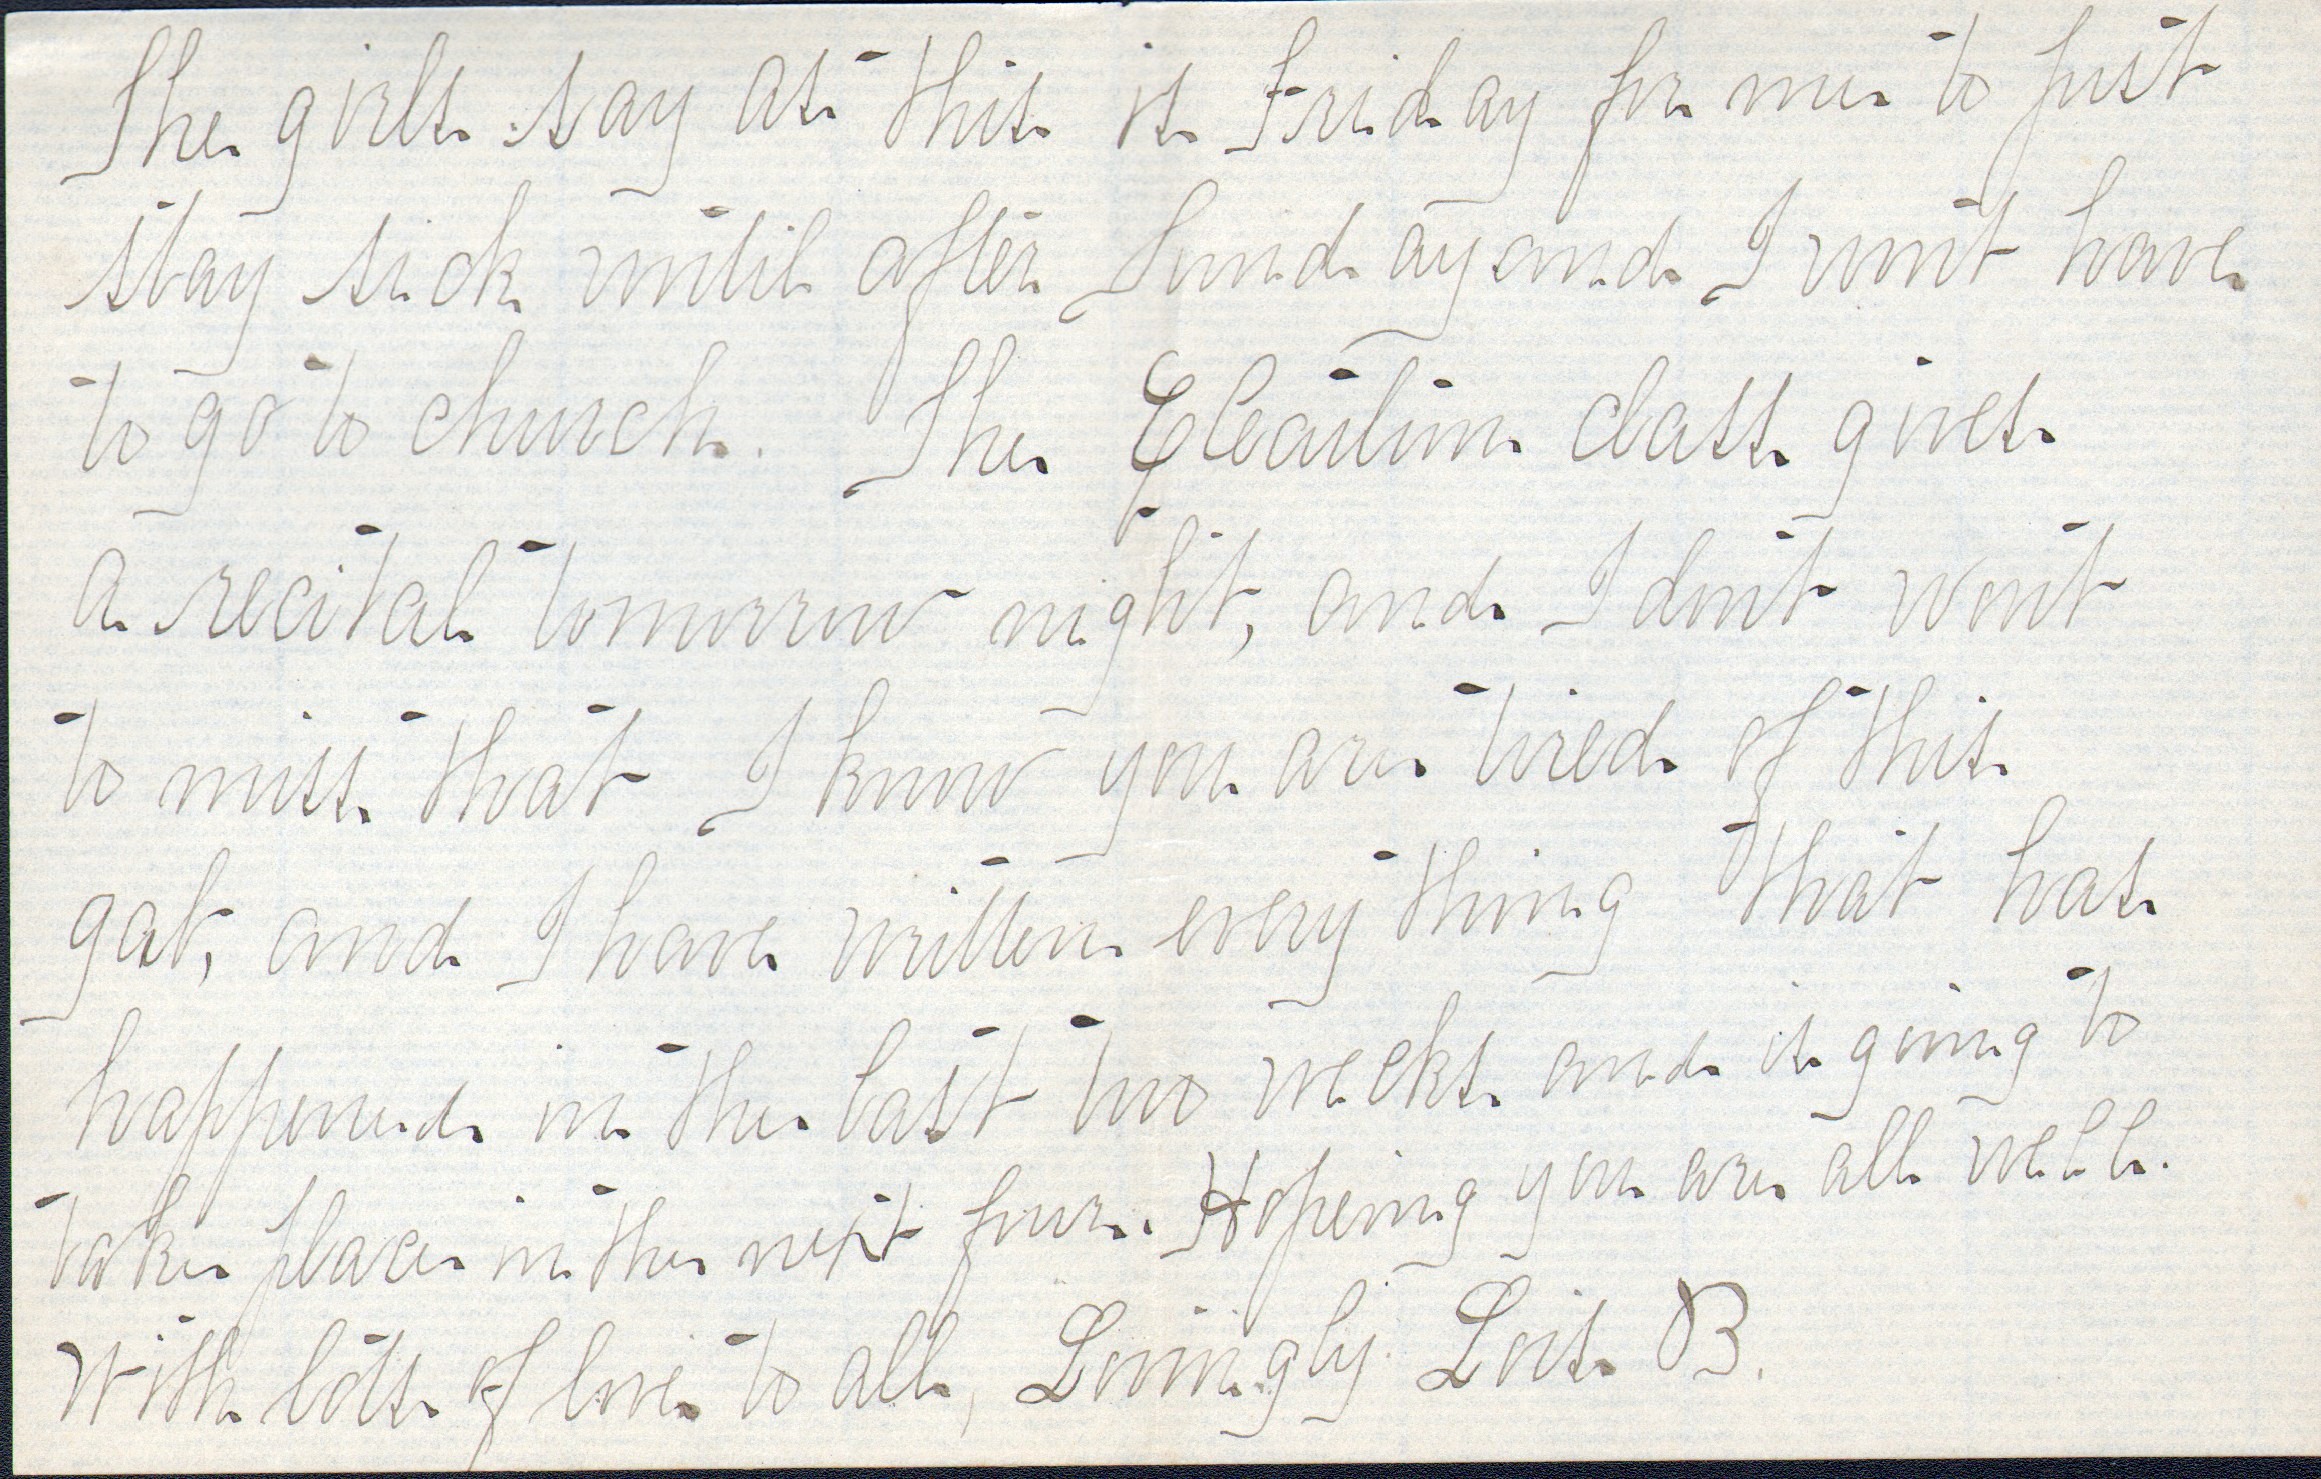 The girls say as this is Friday for me to just
stay sick until after Sunday and I won't have
to go to church. The Elocution class gives
a recital tomorrow night, and I don't want
to miss that I know you are tired of this
gab, and I have written every thing that has
happened in the last two weeks and is going to
take place in the next four. Hopeing you are all well.
With lots of love to all, Lovingly Lois B.